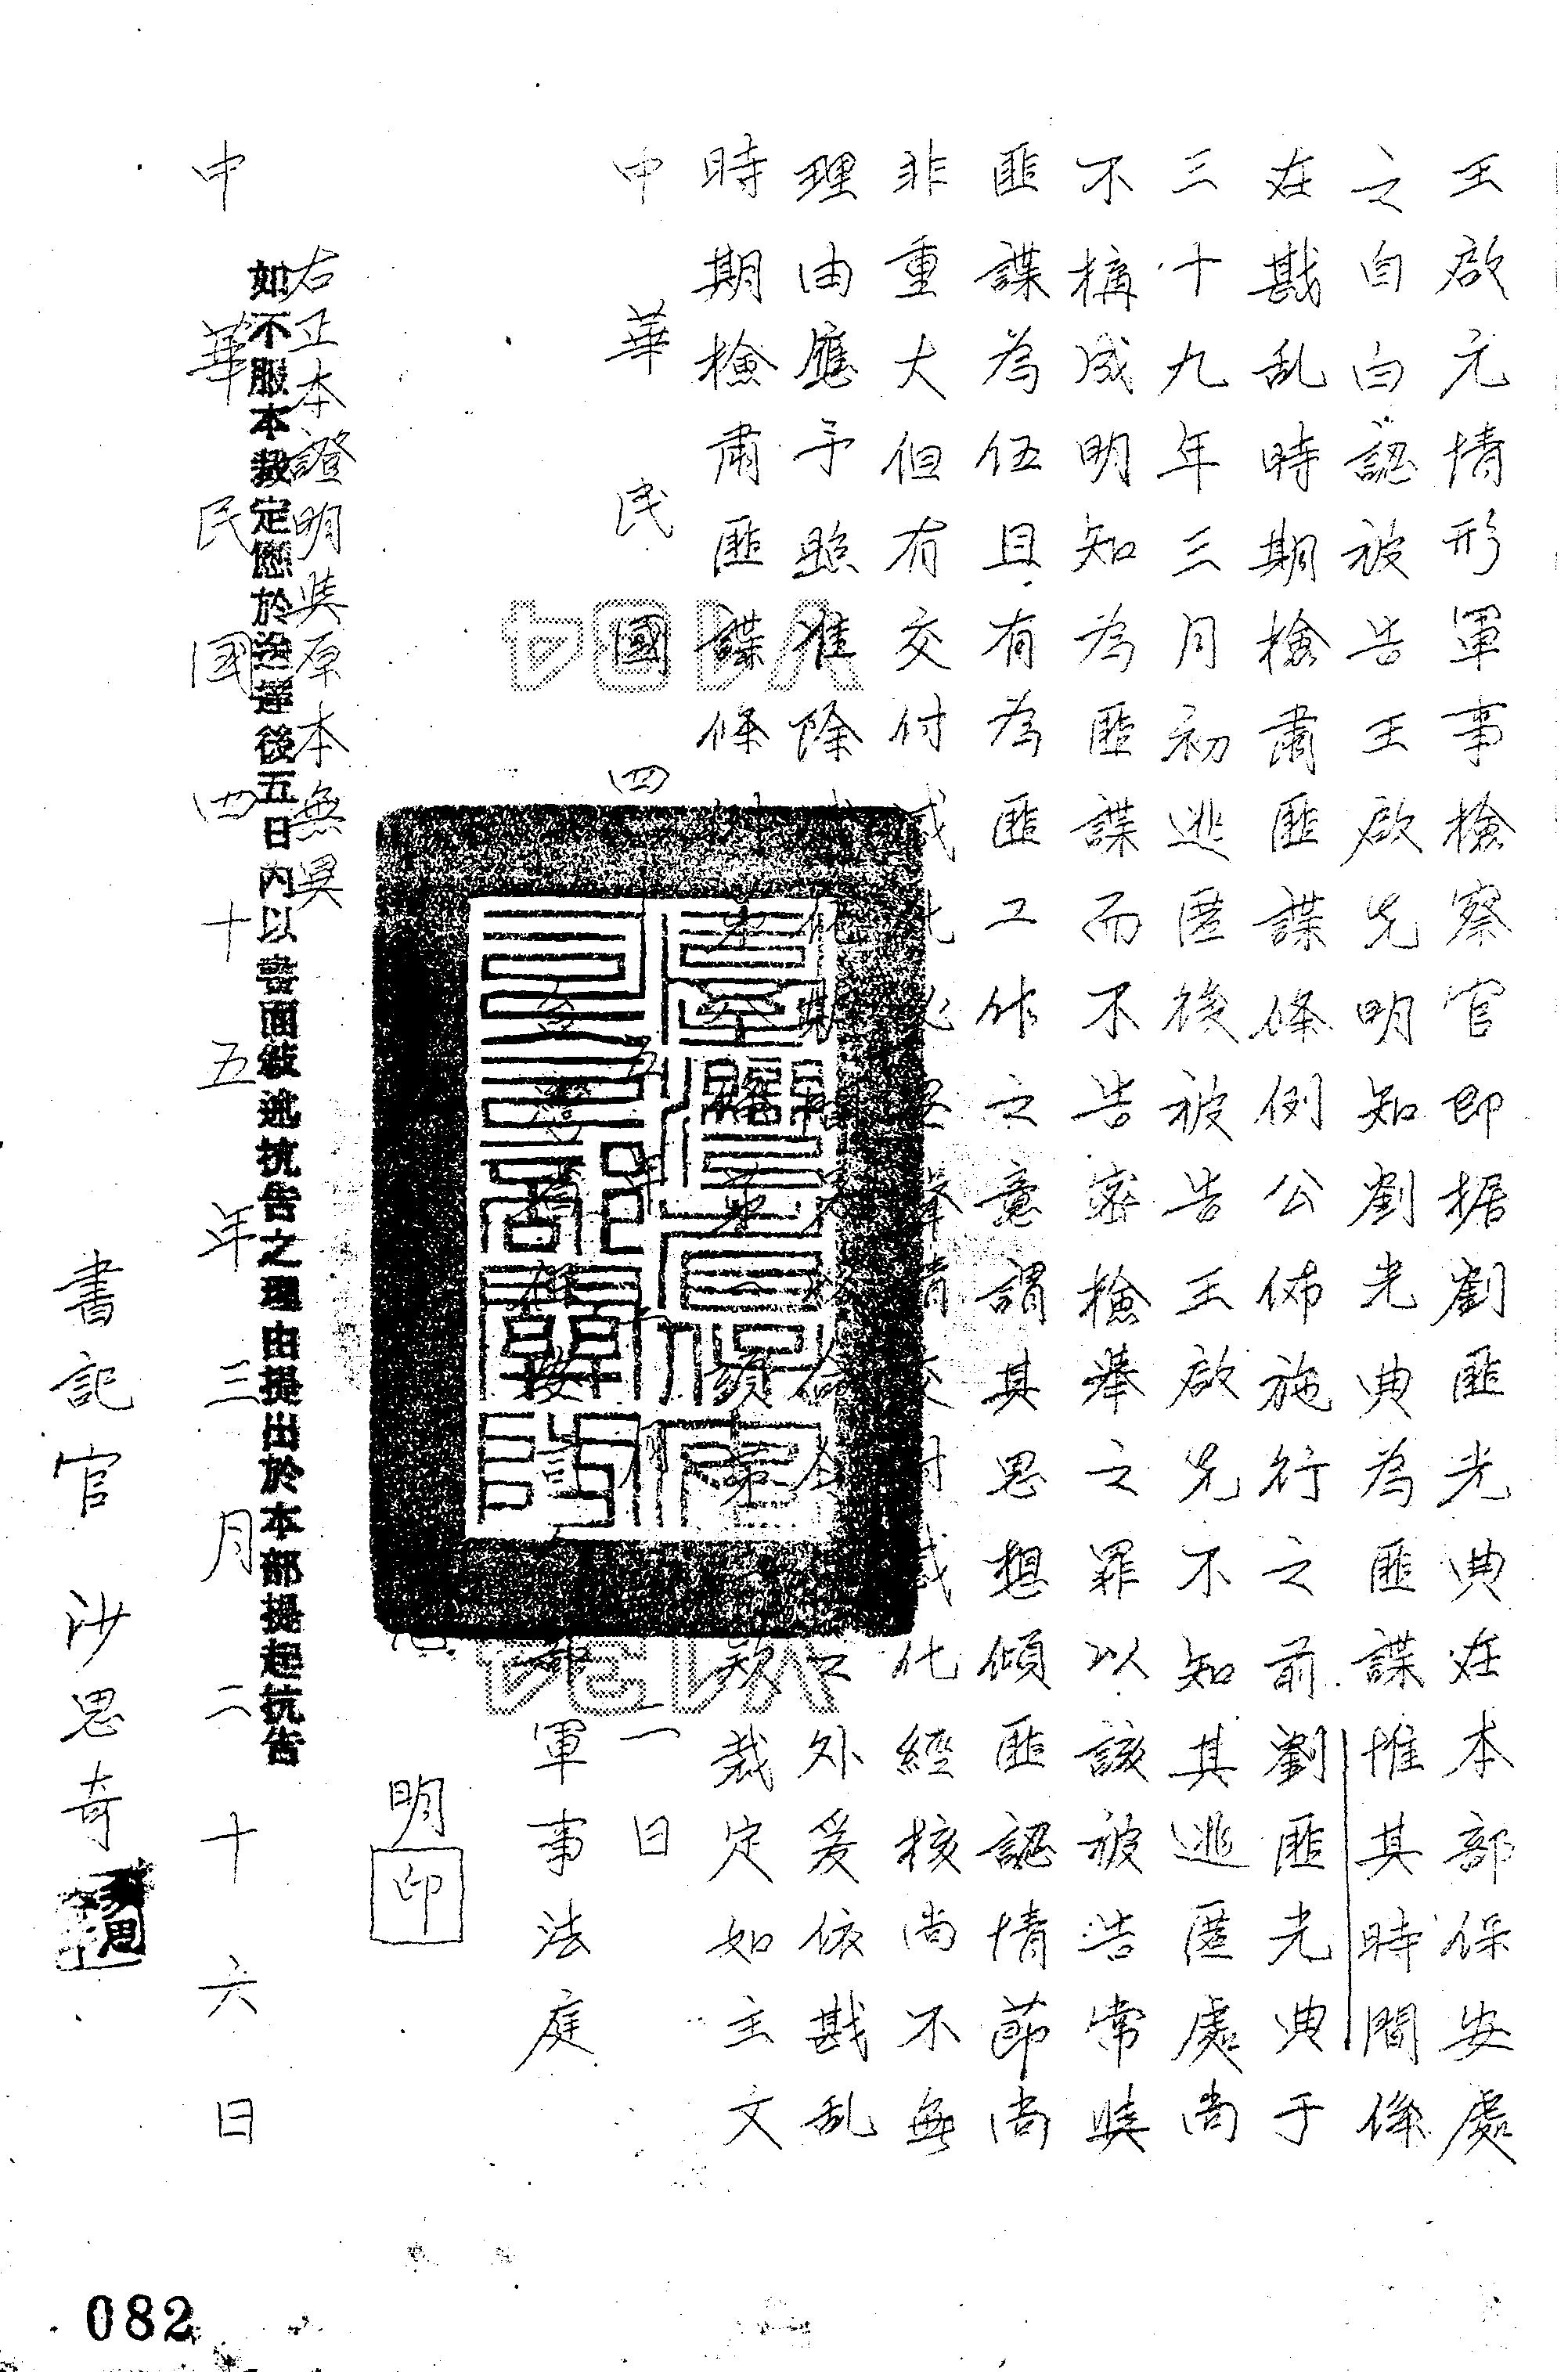 王啟元情形軍事檢察官即据劉匪光典在本部保安處
之自白認被告王啟先明知劉光典為匪諜惟其時間係
在戡乱時期檢肅匪諜條例公佈施行之前劉匪光典于
三十九年三月初逃匿後被告王啟先不知其逃匿處尚
不構成明知為匪諜而不告密檢舉之罪以該被告常與
匪諜為伍且有為匪工作之意謂其思想傾匪認情節尚
非重大但有交付感化 情交付感化經核尚不無
理由應予照准除 外爰依戡乱
時期檢肅匪諜條 裁定如主文
中華民國四 五年 二日
軍事法庭
明 印
右正本證明與原本無異
如不服本裁定應於送達後五日內以書面敘述抗告之理由提出於本部提起抗告
中華民國四十五年三月二十六日
書記官 沙思奇
082